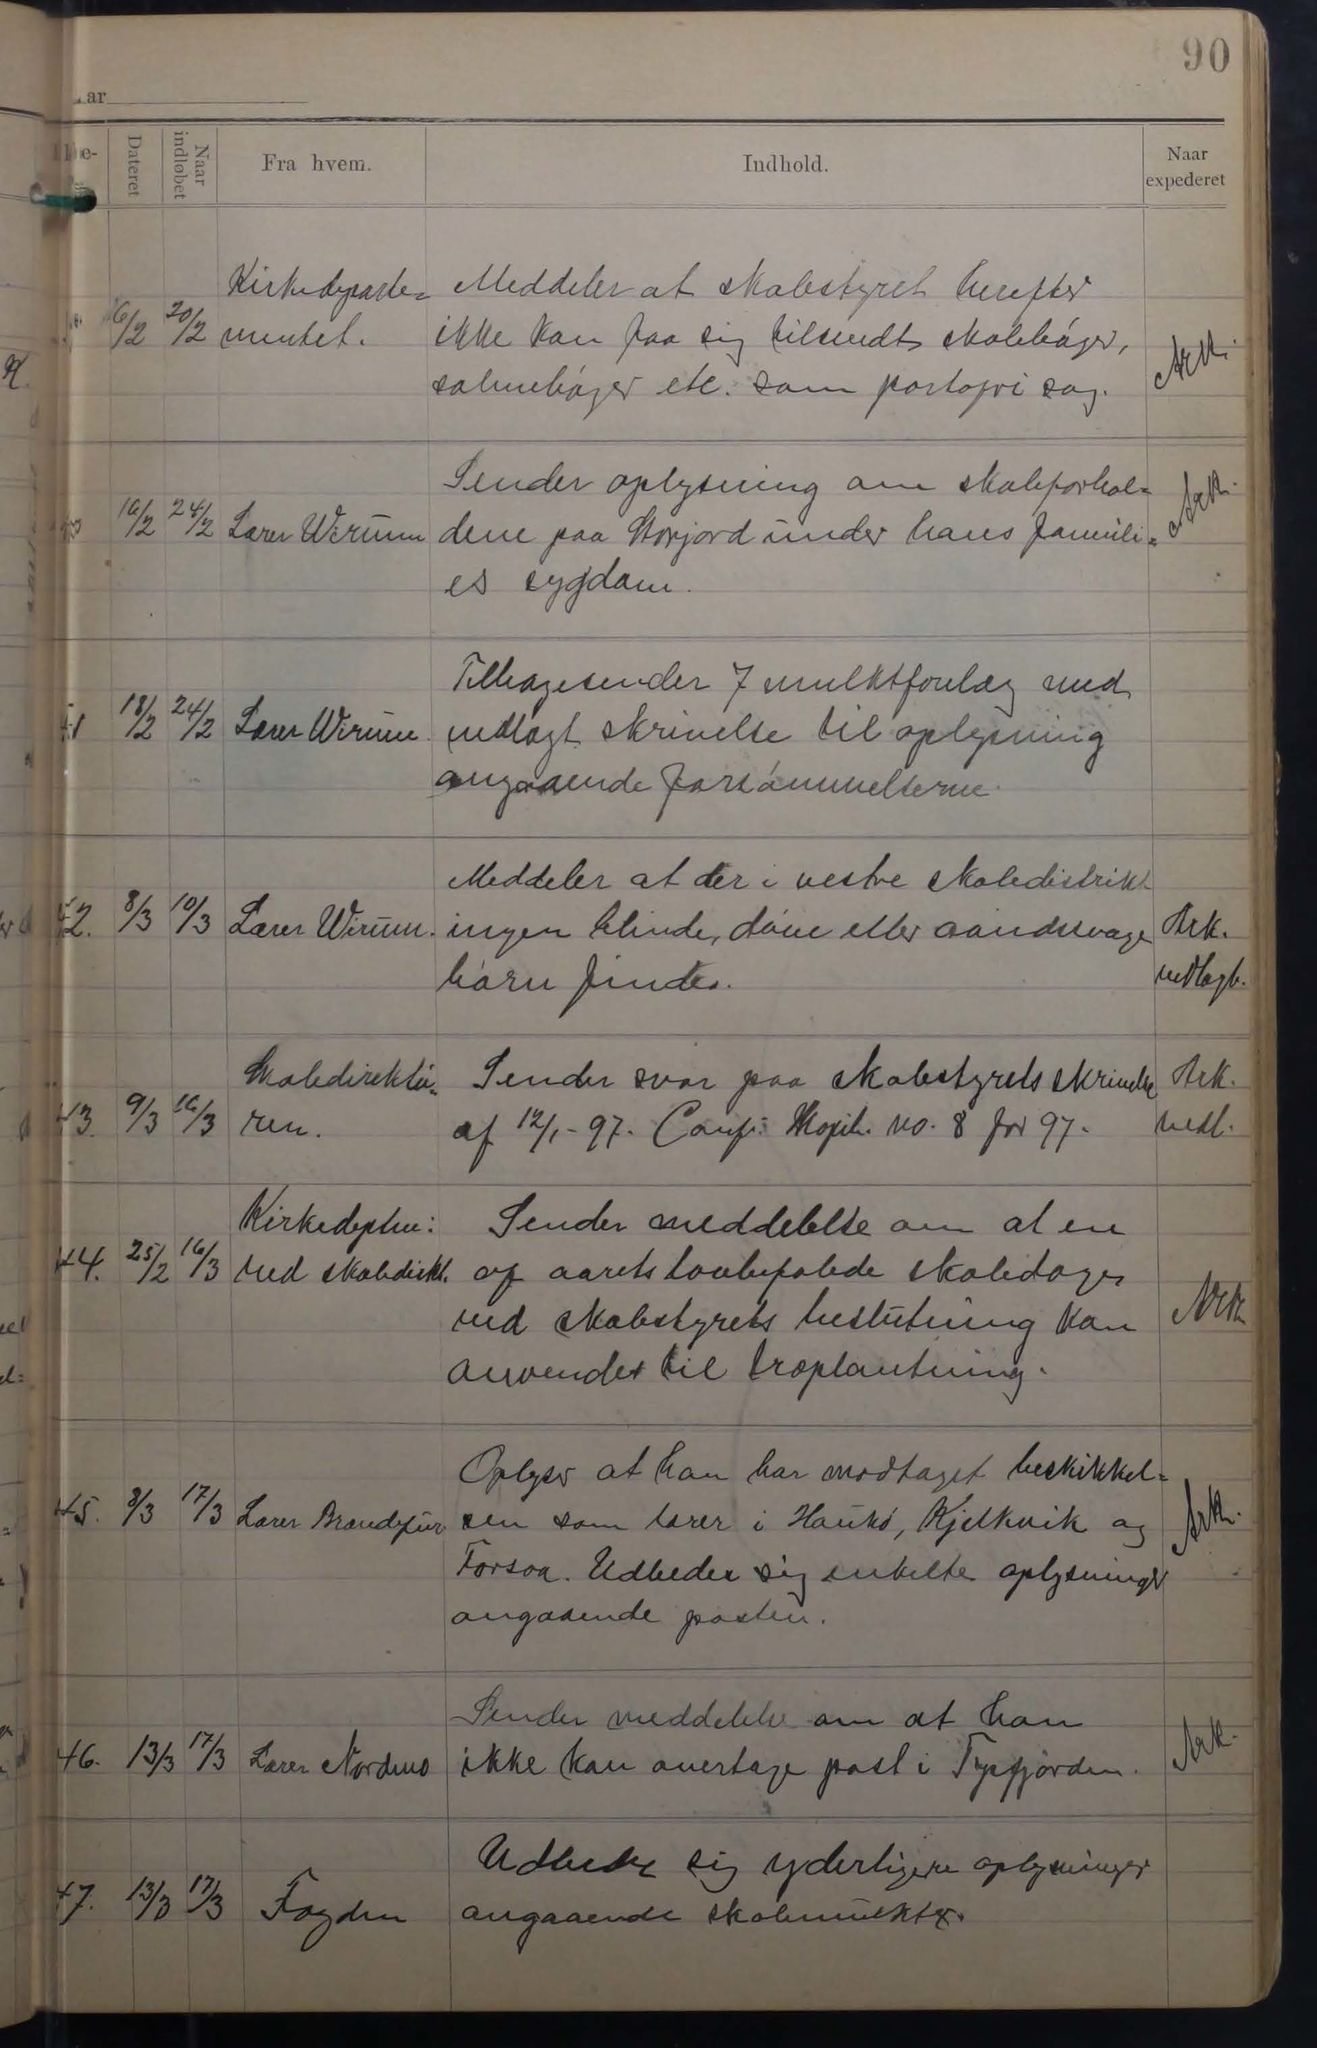 90
ar
Dateret
Naar indløbet
Fra hvem.
Indhold.
Naar expederet
Kirkedeparte= Meddeler at skolestyret herefter
16/2 20/2 mentet. ikke kan faa sig tilsendt skolebøger,
salmebøger etc. som portofri sag. Ark.
Sender oplysning om skoleforhol= Ark.
16/2 24/2 Lærer Wirum dene paa Storjord under hans famili=
es sygdom.
Tilbagesender 7 mulktforelæg med
41 18/2 24/2 Lærer Wirum vedlagt skrivelse til oplysning
angaaende forsømmelserne.
Meddeler at der i vestre skoledistrikt
42. 8/3 10/3 Lærer Wirum. ingen blinde, døve eller aandssvage Ark.
børn findes. vedlagt.
Skoledirektø= Sender svar paa skolestyrets skrivelse Ark.
43. 9/3 16/3 ren. af 12/1-97. Conf: Kopib. no. 8 for 97. vedl.
Kirkedeptm: Sender meddelelse om at en
44. 25/2 16/3 ved skoledirkt. af aarets lovbefalede skoledage
ved skolestyrets beslutning kan Ark
anvendes til træplantning.
Oplyser at han har modtaget beskikkel=
45. 8/3 17/3 Lærer sen som lærer i Haukø, Kjelkvik og Ark.
Forsaa. Udbeder sig enkelte oplysninger
angaaende posten.
Sender meddelelse om at han Ark.
46. 13/3 17/3 Lærer Nordmo ikke kan overtage post i Tysfjorden.
Udbeder sig yderligere oplysninger
47. 13/3 17/3 Fogden angaaende skolemulkter.